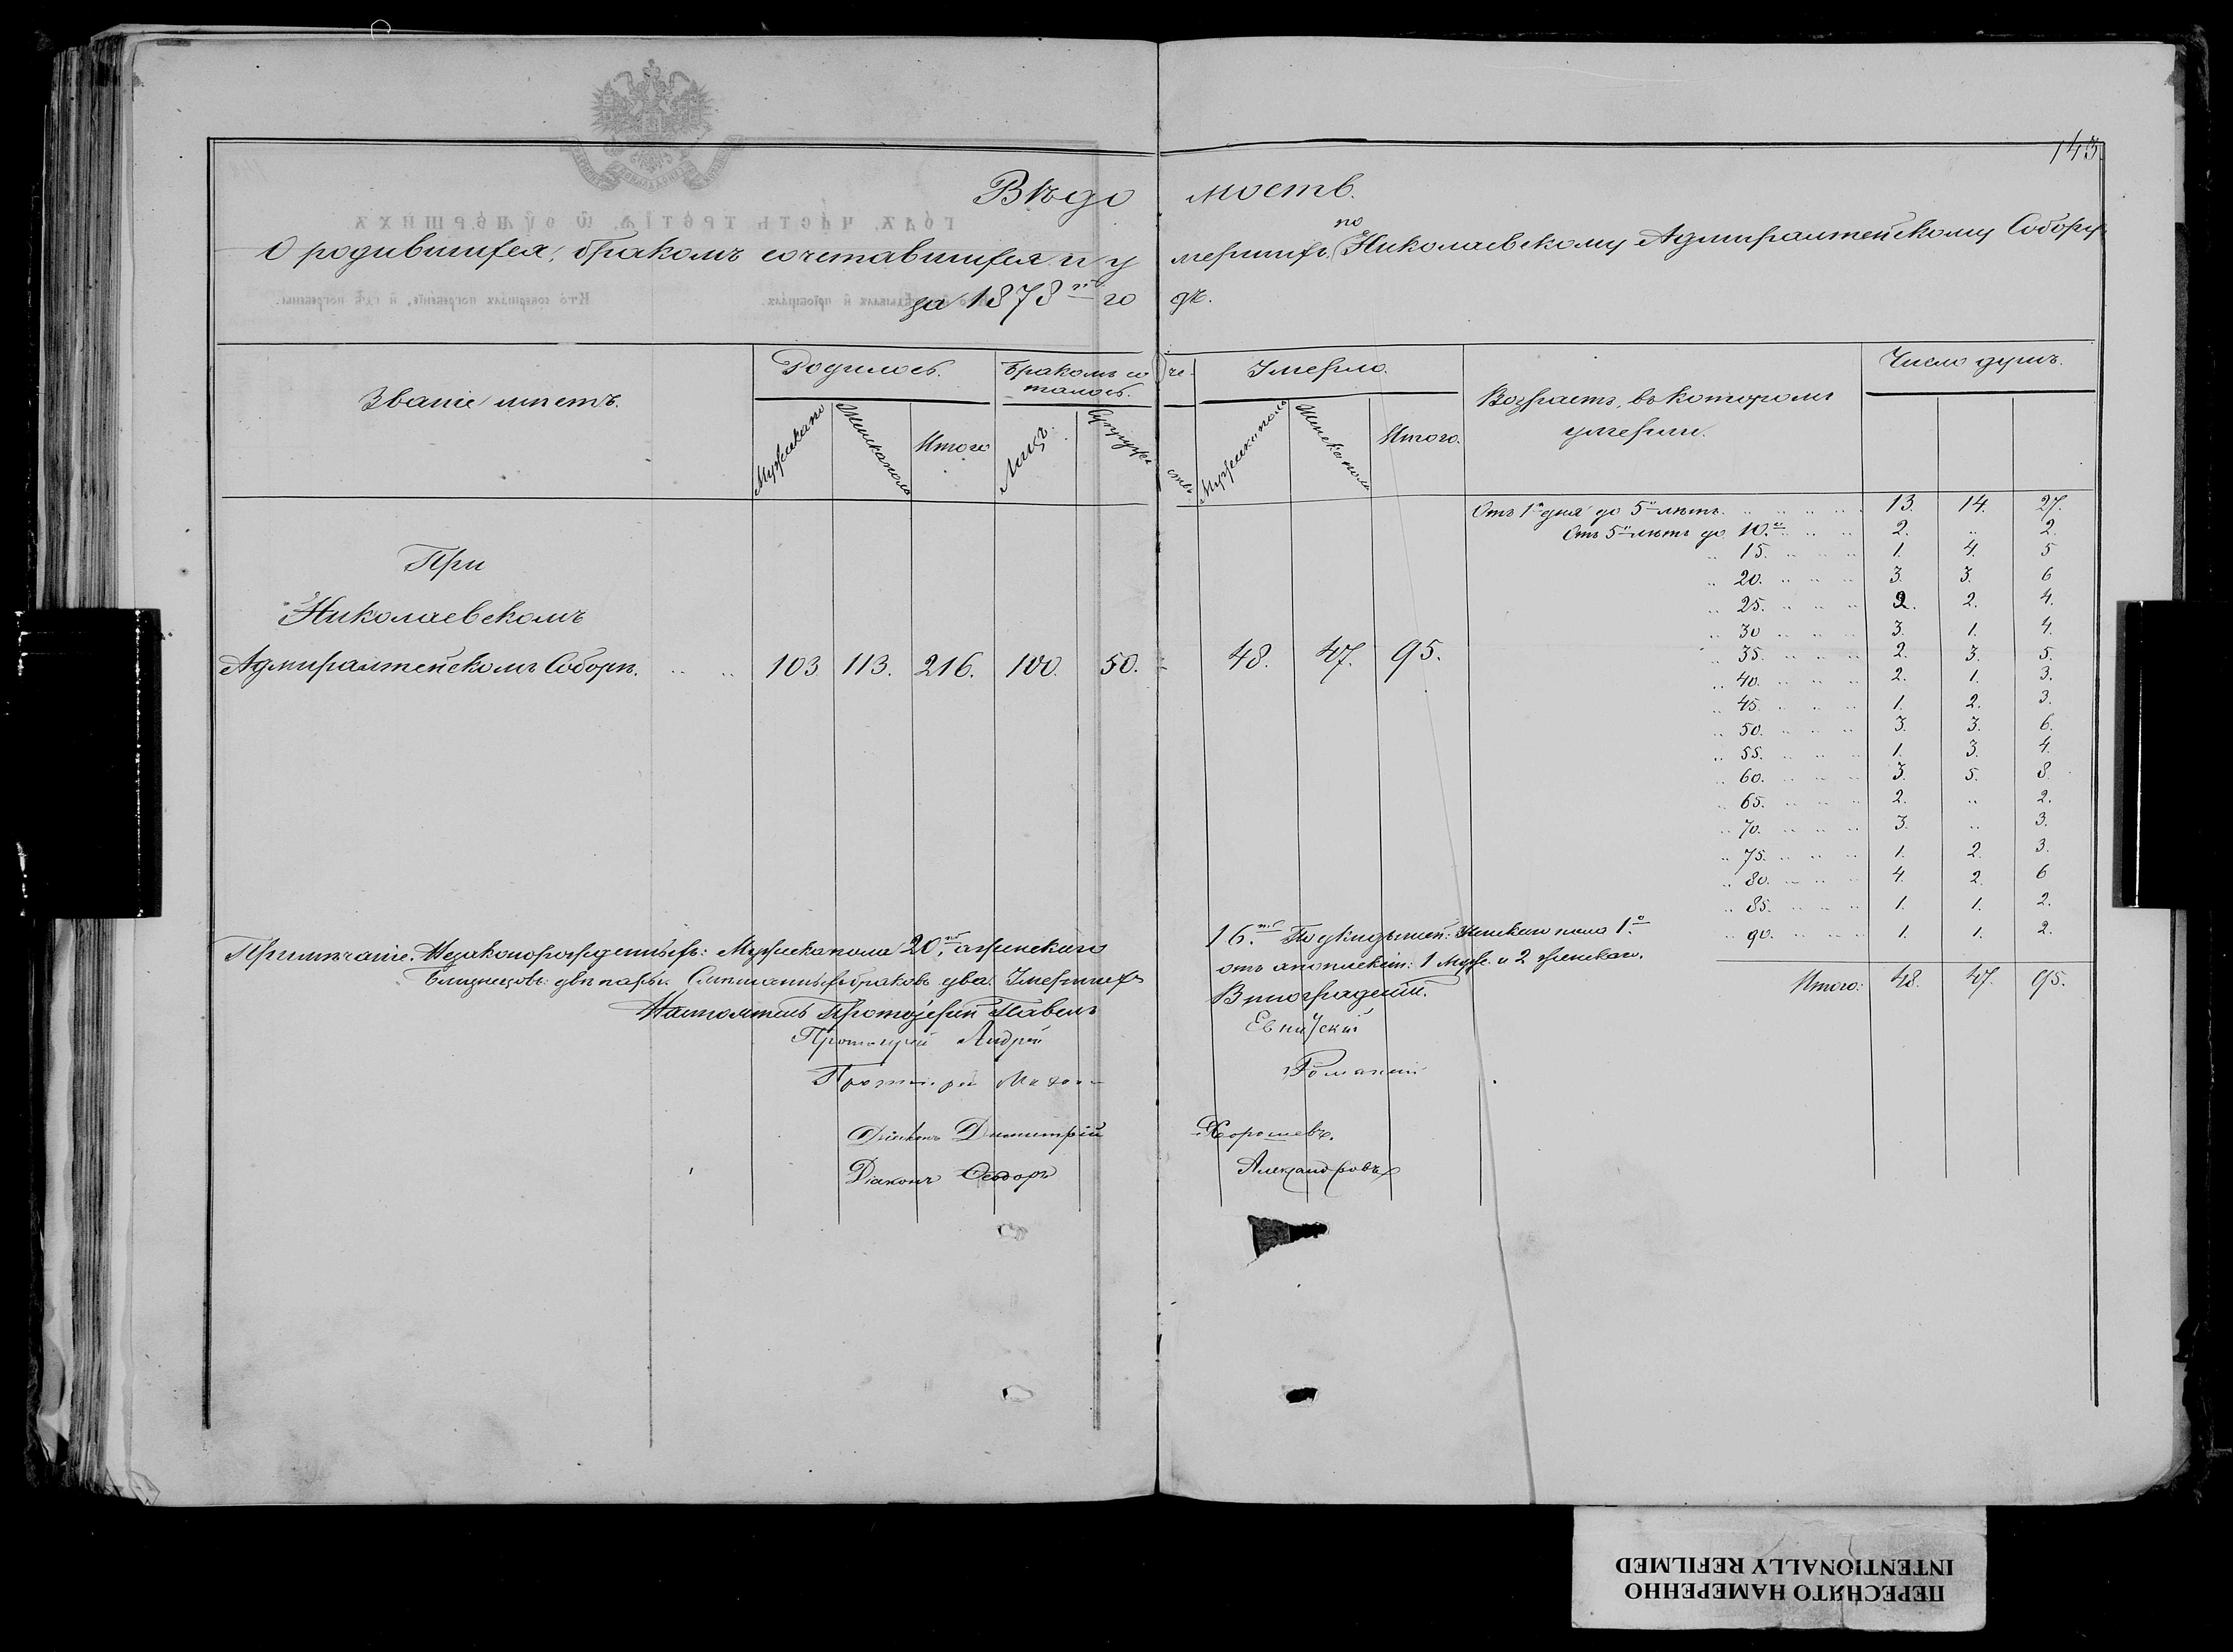 143.
Вѣдомость.
О родившихся, бракомъ сочетавшихся и умершихъ по Николаевскому Адмиралтейскому Собору
за 1878й годъ.
Званіе мѣстъ.
Родилось.
Бракомъ сочеталось.
Умерло.
Возрастъ, въ которомъ умерли.
Число душъ.
Мужеска по
Женска полъ
Итого
Лицъ.
Супружествъ
Мужеска полъ
Женска полъ
Итого.
При
Николаевскомъ
Адмиралтейскомъ Соборѣ. 103 113. 216. 100. 50. 48. 47. 95.
Отъ 1го дня до 5и лѣтъ. 13. 14. 27.
Отъ 5и лѣтъ до 10и 2. .. 2.
.. 15. 1. 4. 5
.. 20. 3. 3. 6
.. 25. 2. 2. 4.
.. 30 3. 1. 4.
.. 35. 2. 3. 5.
.. 40. 2. 1. 3.
.. 45. 1. 2. 3.
.. 50. 3. 3. 6.
.. 55. 1. 3. 4.
.. 60. 3. 5. 8.
.. 65. 2. .. 2.
.. 70. 3. .. 3.
.. 75. 1. 2. 3.
.. 80. 4. 2. 6
.. 85. 1. 1. 2.
.. 90. 1. 1. 2.
Итого: 48. 47. 95.
Примѣчаніе. Незаконорожденныхъ: Мужеска пола 20ть, а женскаго 16ть. Подкидышей: Женскаго пола 1о
Близнецовъ двѣ пары. Смѣшанныхъ браковъ два. Умершихъ отъ апоплексіи: 1 Муж. и 2 женскаго.
Настоятель Протоіерей Павелъ Виноградскій.
Протоіерей Андрей
Протоіерей
Романскій
Діаконъ Димитрій Хорошевъ.
Діаконъ Ѳеодоръ Александровъ
ПЕРЕСНЯТО НАМЕРЕННО
INTENTIONALLY REFILMED